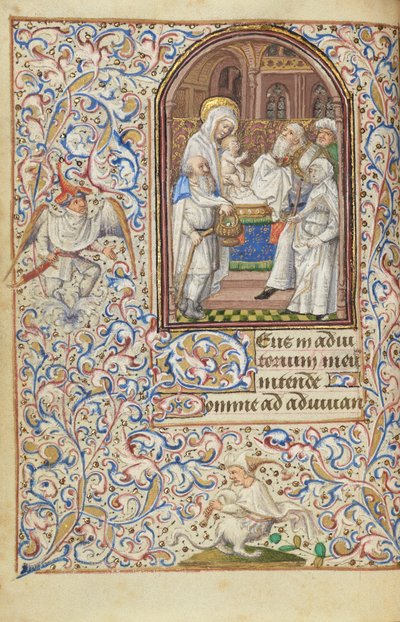 Deus in adiu
torium meu
intende
Domine ad adiuuan